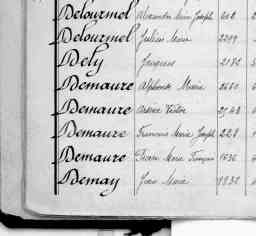 Delourmel Alexandre Marie Joseph 402
Delourmel Julien Marie 2299
Dely Jacques 2182
Demaure Alphonse Marie 2660
Demaure Victor
Demaure Francois Marie Joseph 228
Demaure Pierre Marie Francois 1636
Demay Jean Marie 1932